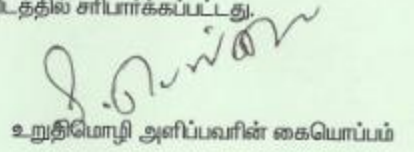 டத்தில் சரிபார்க்கப்பட்டது.
உறுதிமொழி அளிப்பவரின் கையொப்பம்